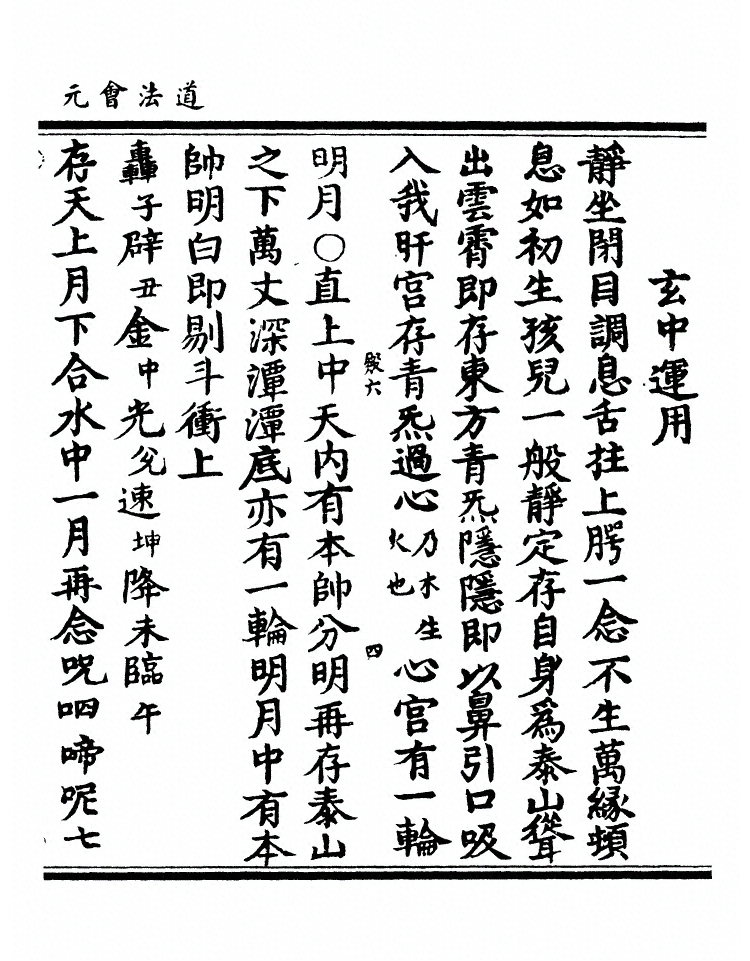 道法會元
玄中運用
靜坐閉目調息舌拄上腭一念不生萬緣頓
息如初生孩兒一般靜定存自身爲泰山聳
出雲霄即存東方青炁隱隱即以鼻引口吸
入我肝宫存青炁過心乃木生火也心宫有一輪
明月○直上中天内有本帥分明再存泰山
般六
四
之下萬丈深潭潭底亦有一輪明月中有本
帥明白即剔斗衝上
轟子辟丑金中光兊速坤降未臨午
存天上月下合水中一月再念呪呬啼呢七